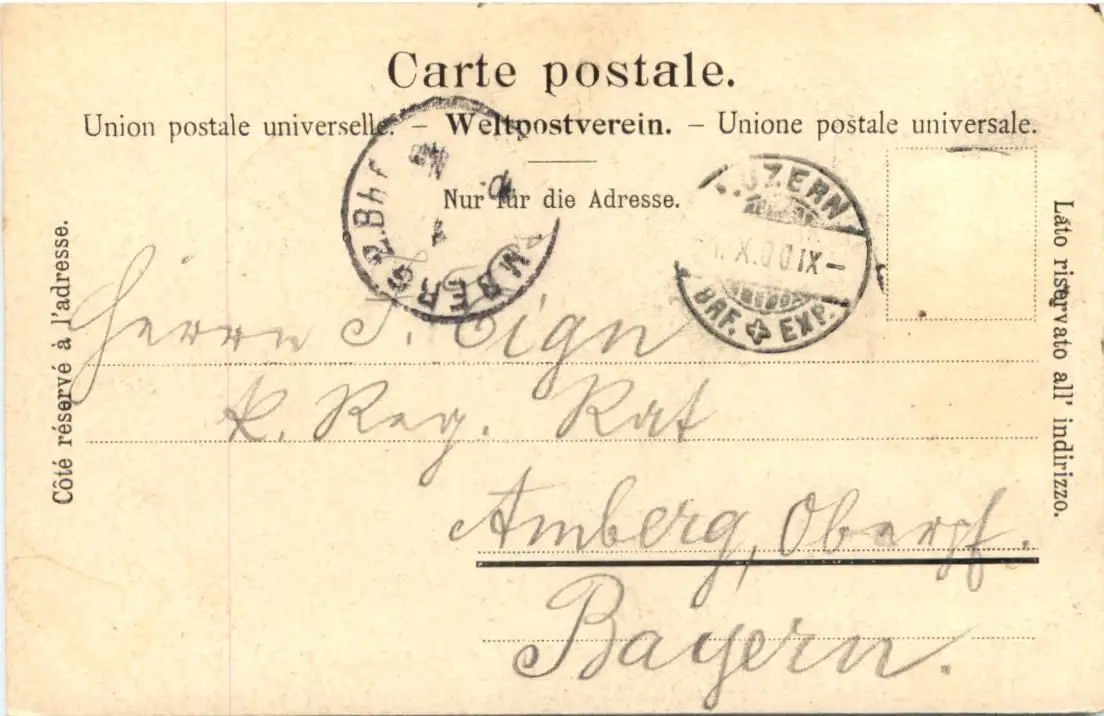 Carte postale.
Union postale universelle. – Weltpostverein. – Unione postale universale.
Nur für die Adresse.
Côté réservé à l'adresse.
Lato riservato all' indirizzo.
AMBERG 2.Bhf
LUZERN
X.00 IX–
BRF. EXP.
Herrn J. Eign
k. Reg. Rat
Amberg, Oberpf.
Bayern.